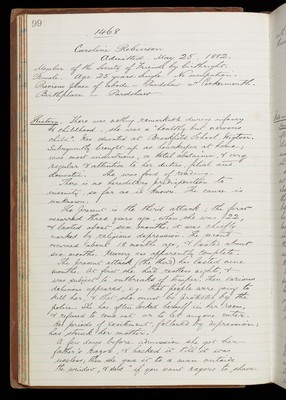 99
1468
Caroline Robinson
Admitted May 25 1892.
Member of the Society of Friends by birthright.
Female. Age 25 years. Single. No occupation.
Previous place of abode - Pardshaw, Cockermouth.
Birthplace - Pardshaw
History. There was nothing remarkable during infancy
& childhood, she was a healthy but nervous
child. Was educated at Brookfield School, Wigton.
Subsequently brought up as housekeeper at home,
was most industrious, a total abstainer & very
regular & attentive to her duties, filial and
domestic. She was fond of reading.
There is no hereditary predisposition to
insanity, so far as is known. The cause is
unknown.
The present is the third attack; the first
occurred three years ago, when she was 22,
& lasted about six months; it was chiefly
marked by religious depression. The second
occurred about 18 months ago, & lasted about
six months. Recovery was apparently complete.
The present attack (the third) has lasted some
months. At first she had restless nights, &
was subject to outbreaks of temper. Then various
delusions appeared, e.g. that people were going to
kill her, & that she must be protected by the
police. She has often locked herself in her room,
& refused to come out or to let anyone enter.
Had periods of excitement, followed by depression;
has struck her mother.
A few days before admission she got her
father's razor, & hacked it till it was
useless, then she gave it to a man outside
the window, & said "if you want razors to shave